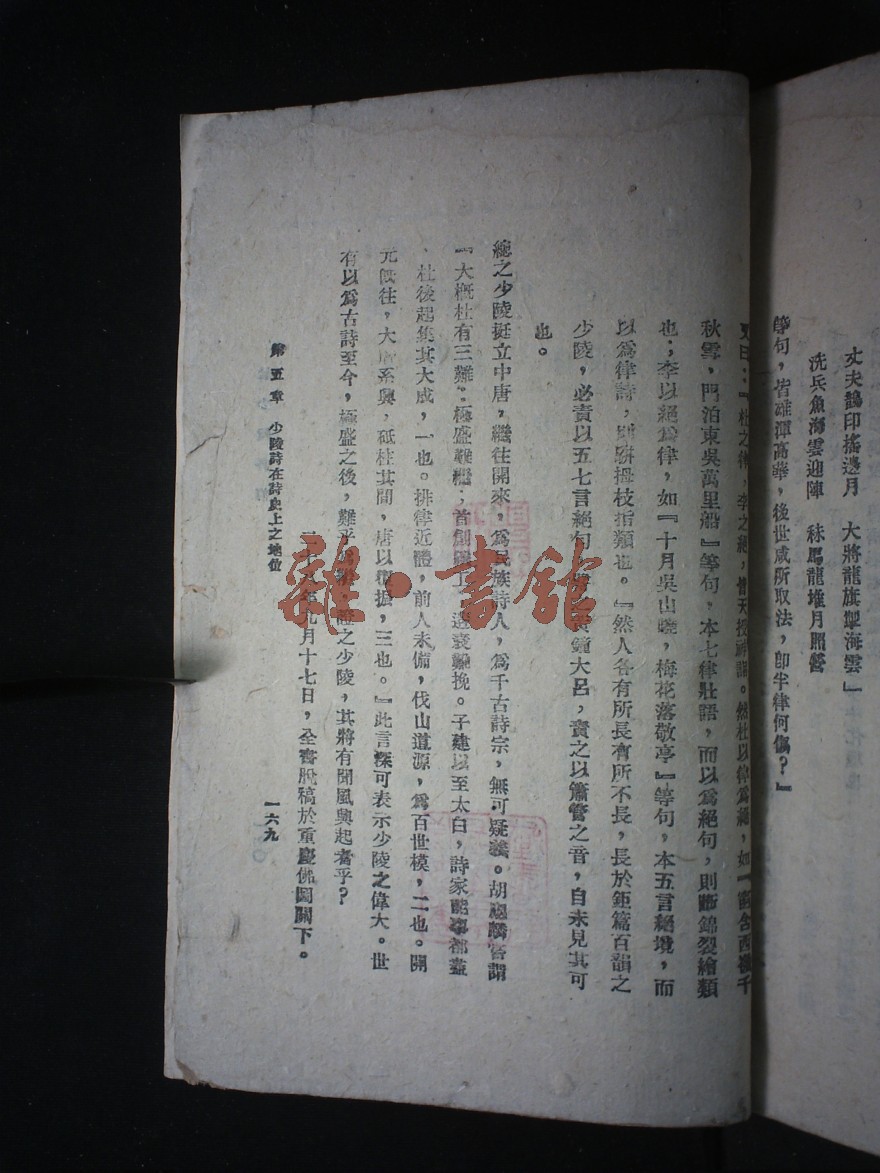 丈夫鵲印搖邊月　大將龍旗掣海雲」
洗兵魚海雲迎陣　秣馬龍堆月照營
等句，皆雄渾高華，後世咸所取法，卽半律何傷？』
又曰：『杜之律，李之絕，皆天授神詣。然杜以律爲絕，如『窗含西嶺千
秋雪，門泊東吳萬里船』等句，本七律壯語，而以爲絕句，則斷錦裂繒類
也；李以絕爲律，如『十月吳山曉，梅花落敬亭』等句，本五言絕境，而
以爲律詩，則駢拇枝指類也。『然人各有所長有所不長，長於鉅篇百韻之
少陵，必責以五七言絕句，黃鐘大呂，責之以簫管之音，自未見其可
也。
總之少陵挺立中唐，繼往開來，爲民族詩人，爲千古詩宗，無可疑義。胡應麟嘗謂
『大槪杜有三難：極盛難繼；首創難工，遘衰難挽。子建以至太白，詩家能事都盡
，杜後起集其大成，一也。排律近體，前人未備，伐山道源，爲百世模，二也。開
元旣往，大曆系興，砥柱其間，唐以復振，三也。』此言深可表示少陵之偉大。世
有以爲古詩至今，極盛之後，難乎爲繼，之少陵，其將有聞風興起者乎？
年九月十七日，全書脫稿於重慶佛圖關下。
第五章　少陵詩在詩史上之地位
一六九
雜·書館